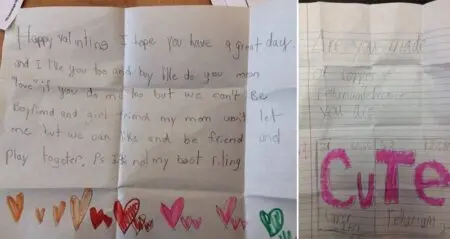 Happy valintins I hope you have a great day.
and I like you too and boy like do you mean
love if you do me too but we can't Be
Boyfrind and girl frind my mom won't let
me but we can like and be friend and
Play togeter. Ps it's not my best riting
Are you made
of copper
tellurium because
you are
CuTe
Tellurium